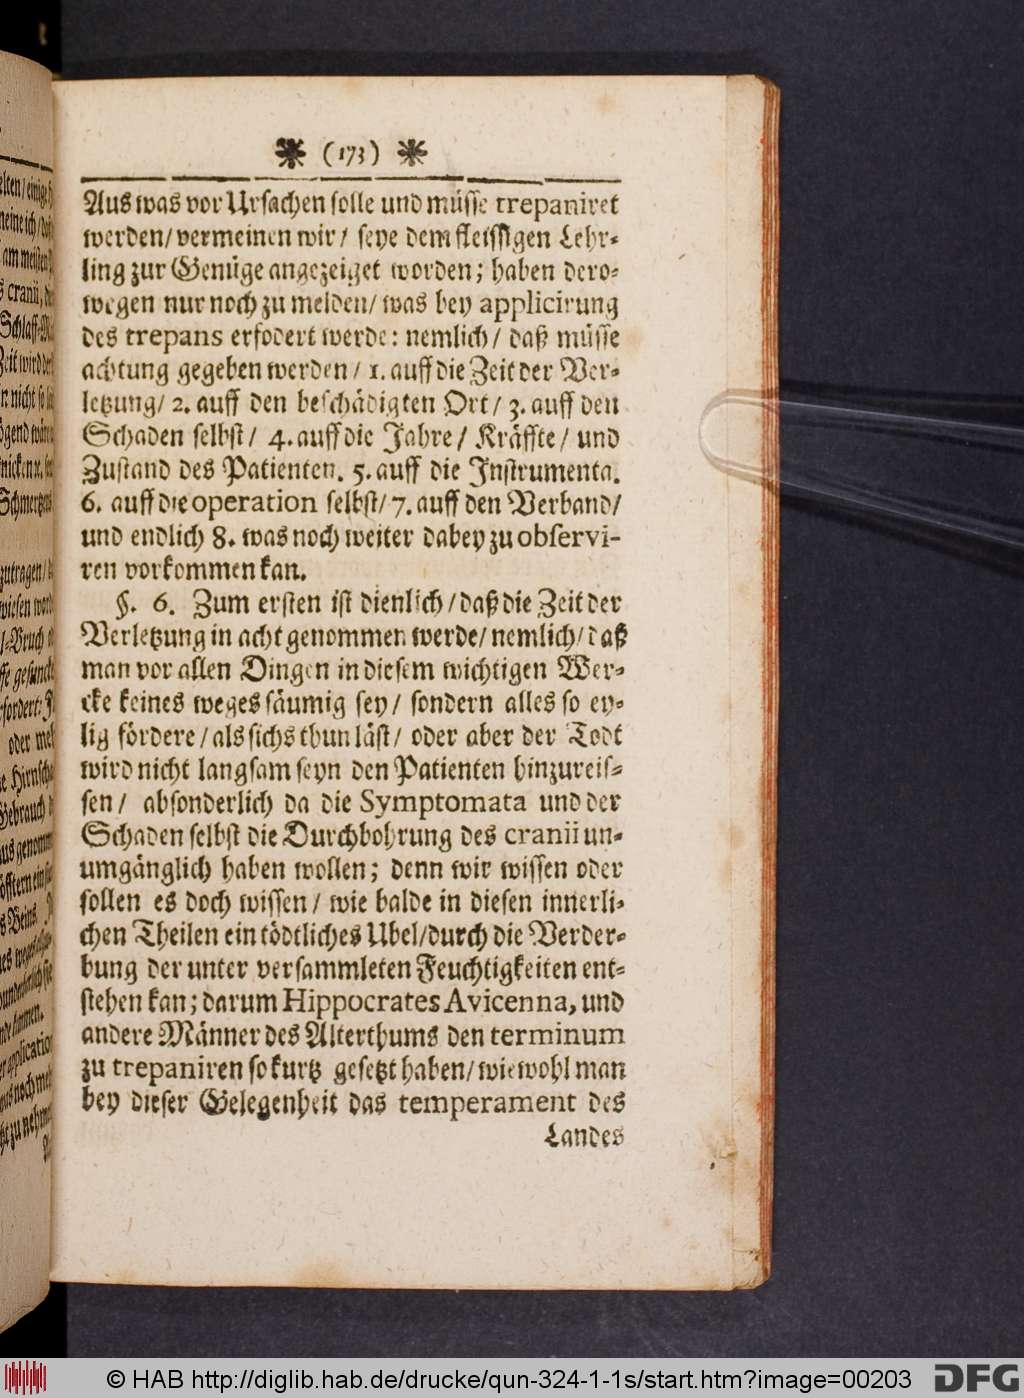 (173)
Aus was vor Ursachen solle und müsse trepaniret
werden/ vermeinen wir/ seye dem fleissigen Lehr-
ling zur Genüge angezeiget worden; haben dero-
wegen nur noch zu melden/ was bey applicirung
des trepans erfodert werde: nemlich/ daß müsse
achtung gegeben werden/ 1. auff die Zeit der Ver-
letzung/ 2. auff den beschädigten Ort/ 3. auff den
Schaden selbst/ 4. auff die Jahre/ Kräffte/ und
Zustand des Patienten. 5. auff die Instrumenta.
6. auff die operation selbst/ 7. auff den Verband/
und endlich 8. was noch weiter dabey zu observi-
ren vorkommen kan.
§. 6. Zum ersten ist dienlich/ daß die Zeit der
Verletzung in acht genommen werde/ nemlich/ daß
man vor allen Dingen in diesem wichtigen Wer-
cke keines weges säumig sey/ sondern alles so ey-
lig fördere/ als sichs thun läst/ oder aber der Todt
wird nicht langsam seyn den Patienten hinzureis-
sen/ absonderlich da die Symptomata und der
Schaden selbst die Durchbohrung des cranii un-
umgänglich haben wollen; denn wir wissen oder
sollen es doch wissen/ wie balde in diesen innerli-
chen Theilen ein tödtliches Ubel/ durch die Verder-
bung der unter versammleten Feuchtigkeiten ent-
stehen kan; darum Hippocrates Avicenna, und
andere Männer des Alterthums den terminum
zu trepaniren so kurtz gesetzt haben/ wiewohl man
bey dieser Gelegenheit das temperament des
Landes
© HAB http://diglib.hab.de/drucke/qun-324-1-1s/start.htm?image=00203
DFG